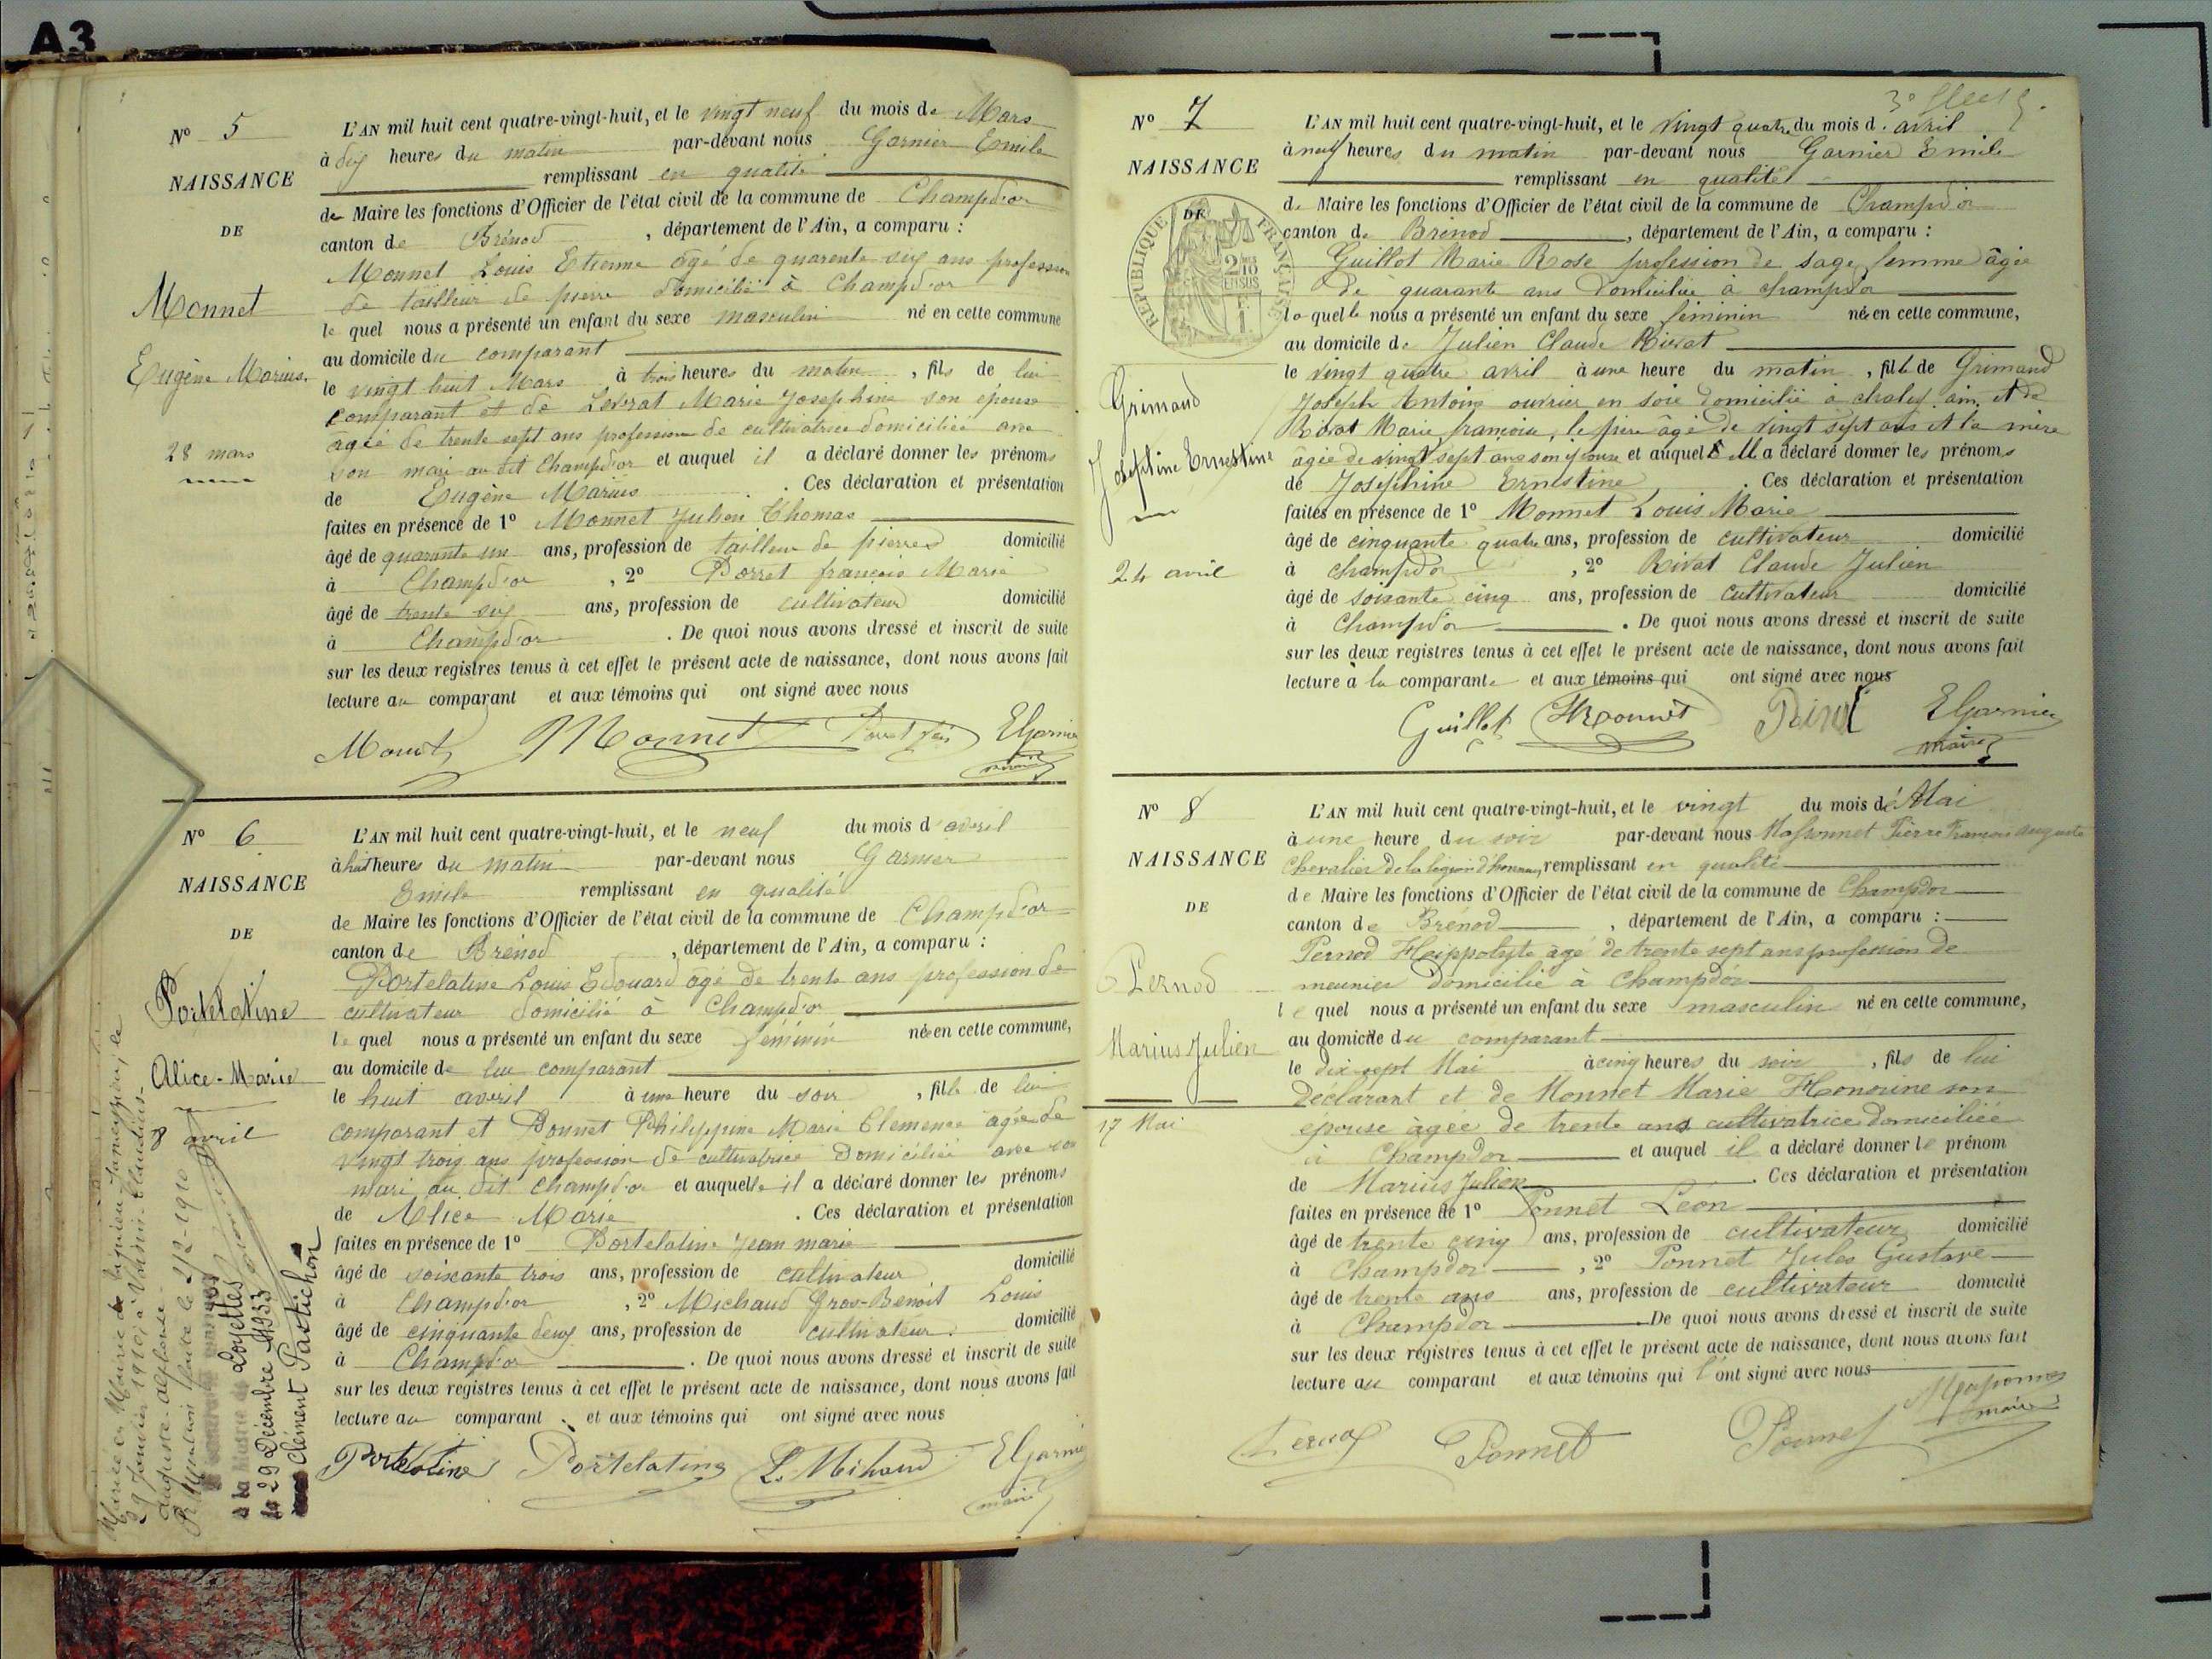 A3
N° 5
NAISSANCE
DE
Monnet
Eugène Marius.
28 mars
L'AN mil huit cent quatre-vingt-huit, et le vingt neuf du mois de Mars
à dix heures du matin par-devant nous Garnier Emile
remplissant en qualité
de Maire les fonctions d'Officier de l'état civil de la commune de Champdor
canton de Brénod , département de l'Ain, a comparu :
Monnet Louis Etienne âgé de quarente six ans profession
de tailleur de pierre domicilié à Champdor
le quel nous a présenté un enfant du sexe masculin né en cette commune
au domicile du comparant
le vingt huit Mars à trois heures du matin , fils de lui
comparant et de Levrat Marie Josephine son épouse
agée de trente sept ans profession de cultivatrice domiciliée avec
son mari au dit Champdor et auquel il a déclaré donner les prénoms
de Eugène Marius . Ces déclaration et présentation
faites en présence de 1° Monnet Julien Thomas
âgé de quarante un ans, profession de tailleur de pierres domicilié
à Champdor , 2° Porret françois Marie
âgé de trente six ans, profession de cultivateur domicilié
à Champdor . De quoi nous avons dressé et inscrit de suite
sur les deux registres tenus à cet effet le présent acte de naissance, dont nous avons fait
lecture au comparant et aux témoins qui ont signé avec nous
Monnet Monnet EGarnier
N° 6
NAISSANCE
DE
Portelatine
Alice-Marie
8 avril
L'AN mil huit cent quatre-vingt-huit, et le neuf du mois d'avril
à huit heures du matin par-devant nous Garnier
Emile remplissant en qualité
de Maire les fonctions d'Officier de l'état civil de la commune de Champdor
canton de Brénod , département de l'Ain, a comparu :
Portelatine Louis Edouard agé de trente ans profession de
cultivateur domicilié à Champdor
le quel nous a présenté un enfant du sexe féminin née en cette commune,
au domicile de lui comparant
le huit avril à une heure du soir , fille de lui
comparant et Bonnet Philippine Marie Clemence agée de
vingt trois ans profession de cultivatrice domiciliée avec son
mari au dit Champdor et auquelle il a déclaré donner les prénoms
de Alice Marie . Ces déclaration et présentation
faites en présence de 1° Portelatine Jean marie
âgé de soixante trois ans, profession de cultivateur domicilié
à Champdor , 2° Michaud Gros-Benoit Louis
âgé de cinquante deux ans, profession de cultivateur. domicilié
à Champdor . De quoi nous avons dressé et inscrit de suite
sur les deux registres tenus à cet effet le présent acte de naissance, dont nous avons fait
lecture au comparant et aux témoins qui ont signé avec nous
Portelatine Portelatine L. Mihaud EGarnier
maire
29 Janvier 1910, à
à la Mairie de Loyettes
le 29 Décembre 1953
Clément Pastichon
N° 7
NAISSANCE
DE
REPUBLIQUE FRANÇAISE
Grimaud
Joséphine Ernestine
24 avril
L'AN mil huit cent quatre-vingt-huit, et le vingt quatre du mois d. avril
à neuf heures du matin par-devant nous Garnier Emile
remplissant en qualité
de Maire les fonctions d'Officier de l'état civil de la commune de Champdor
canton de Brénod , département de l'Ain, a comparu :
Guillot Marie Rose profession de sage femme âgée
de quarante ans domiciliée à champdor
laquelle nous a présenté un enfant du sexe féminin née en cette commune,
au domicile de Julien Claude Rivat
le vingt quatre avril à une heure du matin , fille de Grimaud
Joseph Antoine ouvrier en soie domicilié à chaley ain, et de
Rivat Marie françoise, le père âgé de vingt sept ans et la mère
âgée de vingt sept ans son épouse et auquel a déclaré donner les prénoms
de Joséphine Ernestine . Ces déclaration et présentation
faites en présence de 1° Monnet Louis Marie
âgé de cinquante quatre ans, profession de cultivateur domicilié
à champdor , 2° Rivat Claude Julien
âgé de soixante cinq ans, profession de cultivateur domicilié
à Champdor . De quoi nous avons dressé et inscrit de suite
sur les deux registres tenus à cet effet le présent acte de naissance, dont nous avons fait
lecture à la comparante et aux témoins qui ont signé avec nous
Guillot Monnet Rivat EGarnier
maire
N° 8
NAISSANCE
DE
Pernod
Marius Julien
17 Mai
L'AN mil huit cent quatre-vingt-huit, et le vingt du mois de Mai
à une heure du soir par-devant nous Massonnet Pierre François Auguste
Chevalier de la légion d'honneur, remplissant en qualité
de Maire les fonctions d'Officier de l'état civil de la commune de Champdor
canton de Brénod , département de l'Ain, a comparu :
Pernod Heippolyte âgé de trente sept ans profession de
meunier domicilié à Champdor
le quel nous a présenté un enfant du sexe masculin né en cette commune,
au domicile du comparant
le dix sept Mai à cinq heures du soir , fils de lui
déclarant et de Monnet Marie Honorine son
épouse âgée de trente ans cultivatrice domiciliée
à Champdor et auquel il a déclaré donner le prénom
de Marius Julien . Ces déclaration et présentation
faites en présence de 1° Ponnet Léon
âgé de trente cinq ans, profession de cultivateur domicilié
à Champdor , 2° Ponnet Jules Gustave
âgé de trente ans ans, profession de cultivateur domicilié
à Champdor . De quoi nous avons dressé et inscrit de suite
sur les deux registres tenus à cet effet le présent acte de naissance, dont nous avons fait
lecture au comparant et aux témoins qui l'ont signé avec nous
Pernod Ponnet Ponnet Massonnet
maire